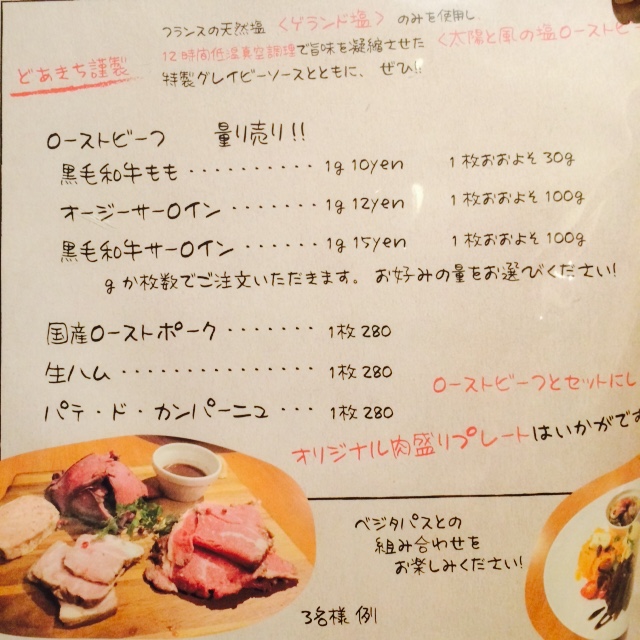 フランスの天然塩 〈ゲランド塩〉 のみを使用し
どあきち謹製
12時間低温真空調理で旨味を凝縮させた 〈太陽と風の塩ローストビ
特製グレイビーソースとともに、ぜひ!!
ローストビーフ 量り売り!!
黒毛和牛もも ・・・・・・・・・・ 1g 10yen 1枚おおよそ30g
オージーサーロイン ・・・・・・・ 1g 12yen 1枚おおよそ100g
黒毛和牛サーロイン ・・・・・・ 1g 15yen 1枚おおよそ100g
gか枚数でご注文いただきます。お好みの量をお選びください!
国産ローストポーク ・・・・・・・ 1枚 280
生ハム ・・・・・・・・・・・・・・・ 1枚 280
パテ・ド・カンパーニュ ・・・ 1枚 280
ローストビーフとセットにし
オリジナル肉盛りプレートはいかがです
ベジタパスとの
組み合わせを
お楽しみください!
3名様 例